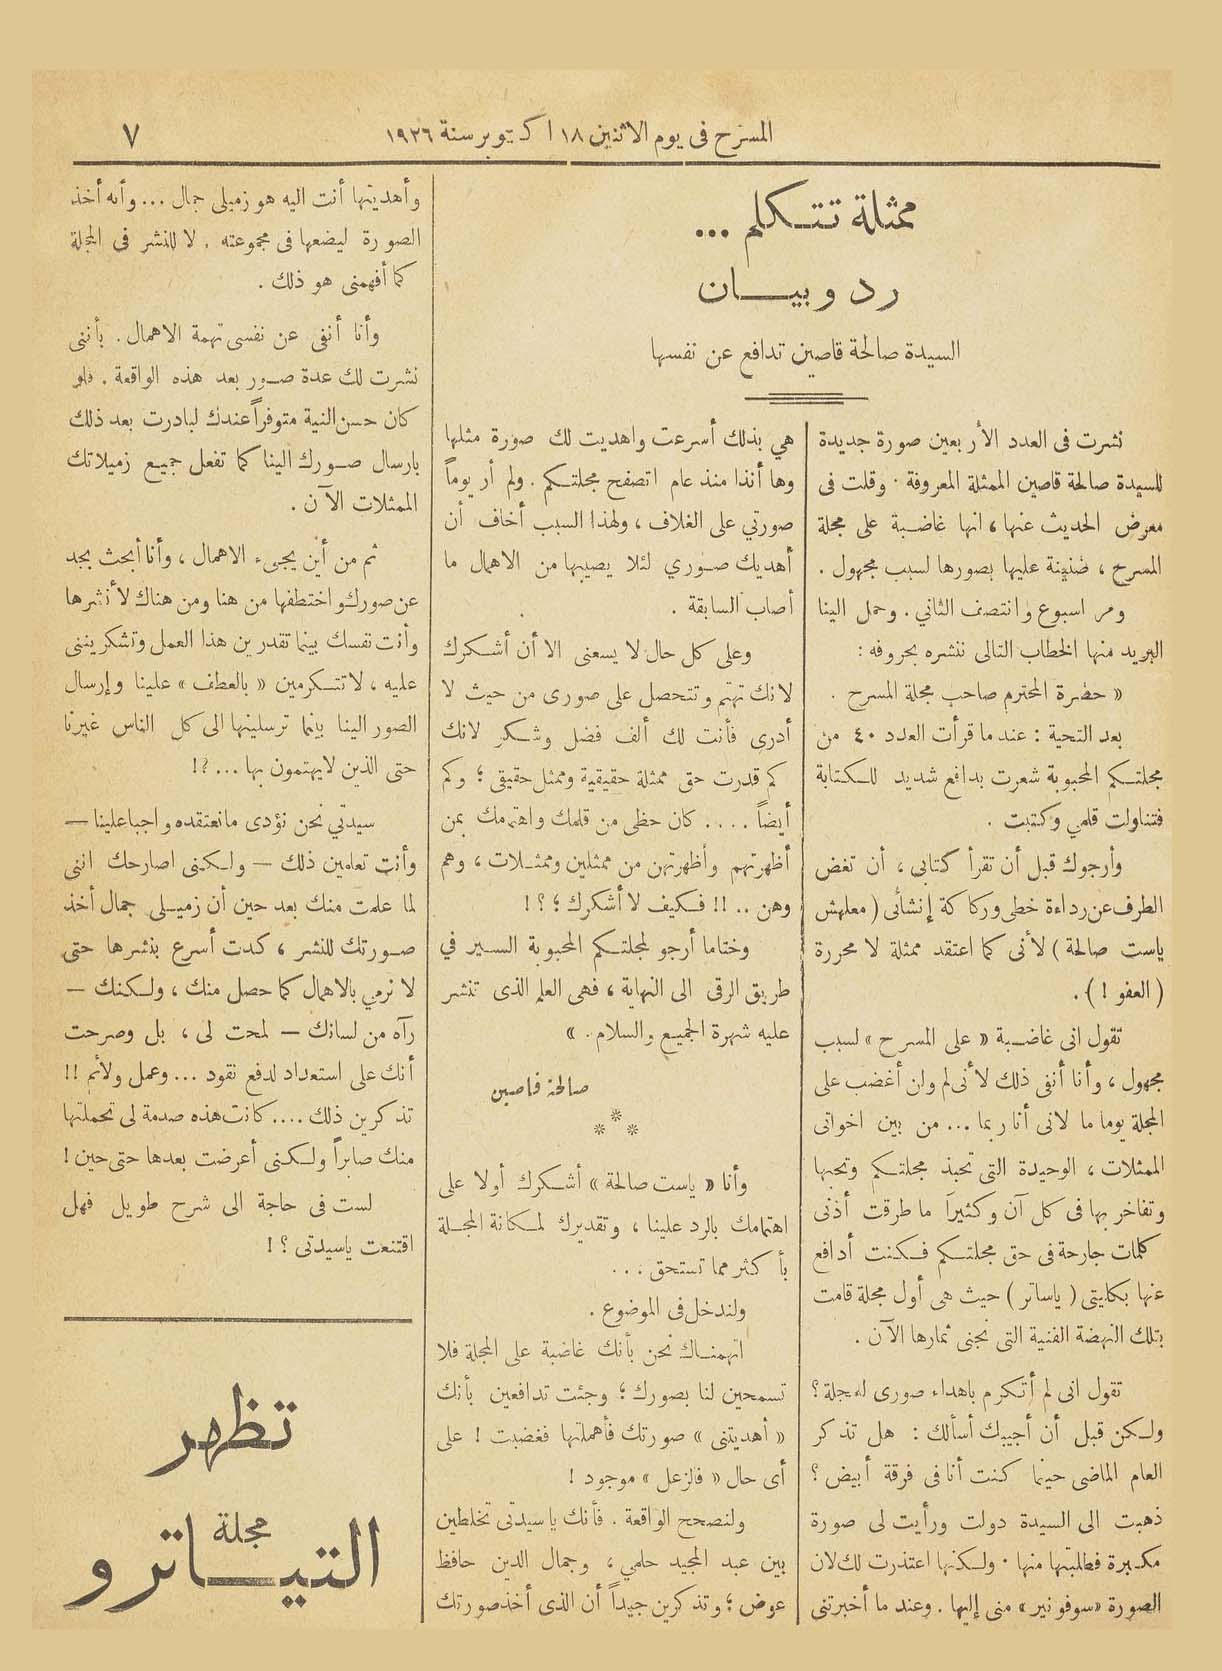 المسرح فى يوم الاثنين ١٨ اكتوبر سنة ١٩٢٦
٧
ممثلة تتكلم ...
رد وبيان
السيدة صالحة قاصين تدافع عن نفسها
نشرت فى العدد الأربعين صورة جديدة
للسيدة صالحة قاصين الممثلة المعروفة . وقلت فى
معرض الحديث عنها ، انها غاضبة على مجلة
المسرح ، ضنينة عليها بصورها لسبب مجهول .
ومر اسبوع وانتصف الثاني . وحمل الينا
البريد منها الخطاب التالى ننشره بحروفه :
« حضرة المحترم صاحب مجلة المسرح .
بعد التحية : عند ما قرأت العدد ٤٠ من
مجلتكم المحبوبة شعرت بدافع شديد للكتابة
فتناولت قلمي وكتبت .
وأرجوك قبل أن تقرأ كتابى ، أن تغض
الطرف عن رداءة خطى وركاكة إنشأئى ( معلهش
ياست صالحة ) لأنى كما اعتقد ممثلة لا محررة
( العفو ! ) .
تقول انى غاضبة « على المسرح » لسبب
مجهول ، وأنا أنفى ذلك لأنى لم ولن أغضب على
المجلة يوما ما لانى أنا ربما ... من بين اخواتى
الممثلات ، الوحيدة التى تحبذ مجلتكم وتحبها
وتفاخر بها فى كل آن وكثيراً ما طرقت أذنى
كلمات جارحة فى حق مجلتكم فكنت أدافع
عنها بكايتى ( ياساتر ) حيث هى أول مجلة قامت
بتلك النهضة الفنية التى نجنى ثمارها الآن .
تقول انى لم أتكرم باهداء صورى للمجلة ؟
ولكن قبل أن أجيبك أسألك : هل تذكر
العام الماضى حينما كنت أنا فى فرقة أبيض ؟
ذهبت الى السيدة دولت ورأيت لى صورة
مكبرة فطلبتها منها . ولكنها اعتذرت لك لان
الصورة «سوفونير» منى إليها . وعند ما أخبرتنى
هي بذلك أسرعت واهديت لك صورة مثلها
وها أنذا منذ عام اتصفح مجلتكم . ولم أر يوماً
صورتي على الغلاف ، ولهذا السبب أخاف أن
أهديك صوري لئلا يصيبها من الاهمال ما
أصاب السابقة .
وعلى كل حال لا يسعنى الا أن أشكرك
لانك تهتم وتتحصل على صورى من حيث لا
أدرى فأنت لك ألف فضل وشكر لانك
كم قدرت حق ممثلة حقيقية وممثل حقيقى ؛ وكم
أيضاً .... كان حظى من قلمك واهتمامك بمن
أظهرتهم وأظهرتهن من ممثلين وممثلات ، وهم
وهن .. !! فكيف لا أشكرك ؛ ؟ !
وختاما أرجو لمجلتكم المحبوبة السير في
طريق الرقى الى النهاية ، فهى العلم الذى تنشر
عليه شهرة الجميع والسلام . »
صالحة قاصين
***
وأنا « ياست صالحة » أشكرك أولا على
اهتمامك بالرد علينا ، وتقديرك لمكانة المجلة
بأكثر مما تستحق ...
ولندخل فى الموضوع .
اتهمناك نحن بأنك غاضبة على المجلة فلا
تسمحين لنا بصورك ؛ وجئت تدافعين بأنك
« أهديتنى » صورتك فأهملتها فغضبت ! على
أى حال « فالزعل » موجود !
ولنصحح الواقعة . فأنك ياسيدتى تخلطين
بين عبد المجيد حلمي ، وجمال الدين حافظ
عوض ؛ وتذكرين جيداً أن الذى أخذ صورتك
وأهديتها أنت اليه هو زميلى جمال ... وأنه أخذ
الصورة ليضعها فى مجموعته . لا للنشر فى المجلة
كما أفهمنى هو ذلك .
وأنا أنفى عن نفسى تهمة الاهمال . بأننى
نشرت لك عدة صور بعد هذه الواقعة . فلو
كان حسن النية متوفراً عندك لبادرت بعد ذلك
بارسال صورك الينا كما تفعل جميع زميلاتك
الممثلات الآن .
ثم من أين يجىء الاهمال ، وأنا أبحث بجد
عن صورك واختطفها من هنا ومن هناك لأنشرها
وأنت نفسك بينما تقدرين هذا العمل وتشكريننى
عليه ، لا تتكرمين « بالعطف » علينا وإرسال
الصور الينا بينما ترسلينها الى كل الناس غيرنا
حتى الذين لايهتمون بها ... ؟ !
سيدتي نحن نؤدى مانعتقده واجباعلينا —
وأنت تعلمين ذلك — ولكنى اصارحك اننى
لما علمت منك بعد حين أن زميلى جمال أخذ
صورتك للنشر ، كدت أسرع بنشرها حتى
لا نرمي بالاهمال كما حصل منك ، ولكنك —
رآه من لسانك — لمحت لى ، بل وصرحت
أنك على استعداد لدفع نقود ... وعمل ولائم !!
تذكرين ذلك .... كانت هذه صدمة لى تحملتها
منك صابراً ولكنى أعرضت بعدها حتى حين !
لست فى حاجة الى شرح طويل فهل
اقتنعت ياسيدتى ؟ !
تظهر
مجلة
التياترو